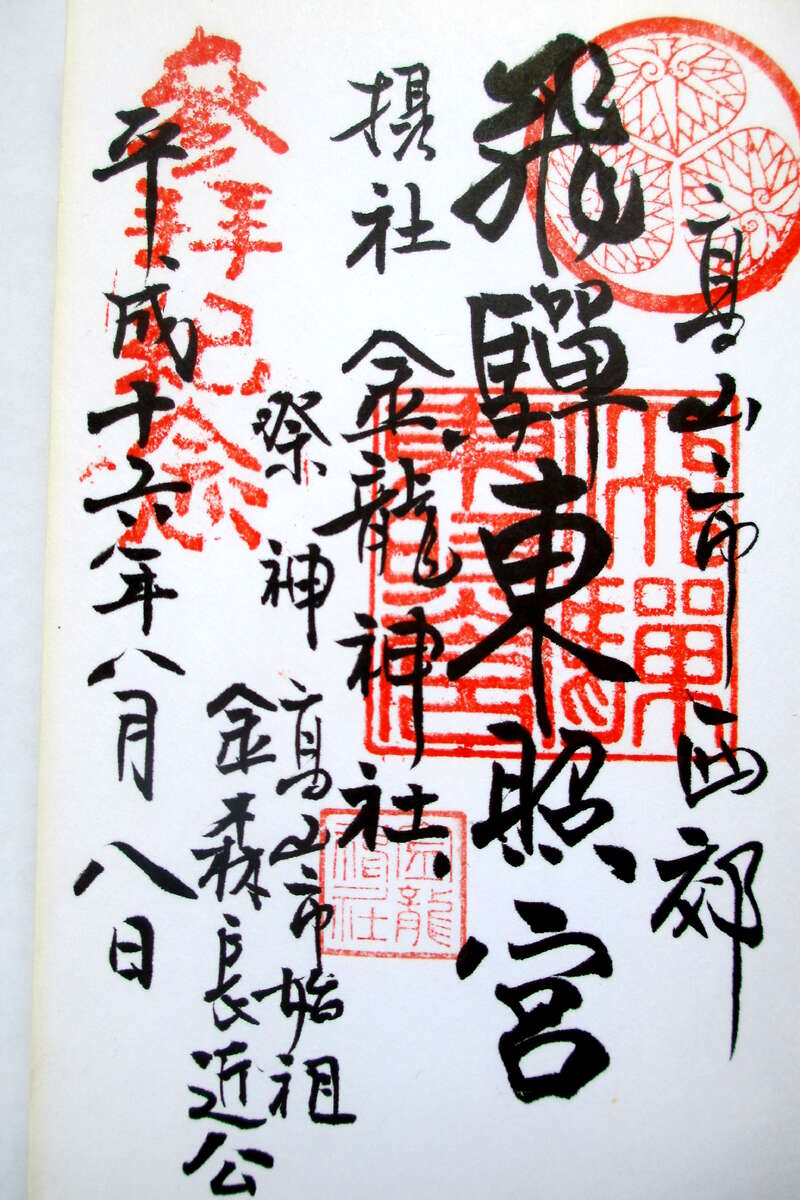 高山市西郊
飛驒東照宮
摂社 金龍神社
祭神 高山市始祖
金森長近公
平成十六年八月八日
参拝記念
飛驒東照宮
金龍神社